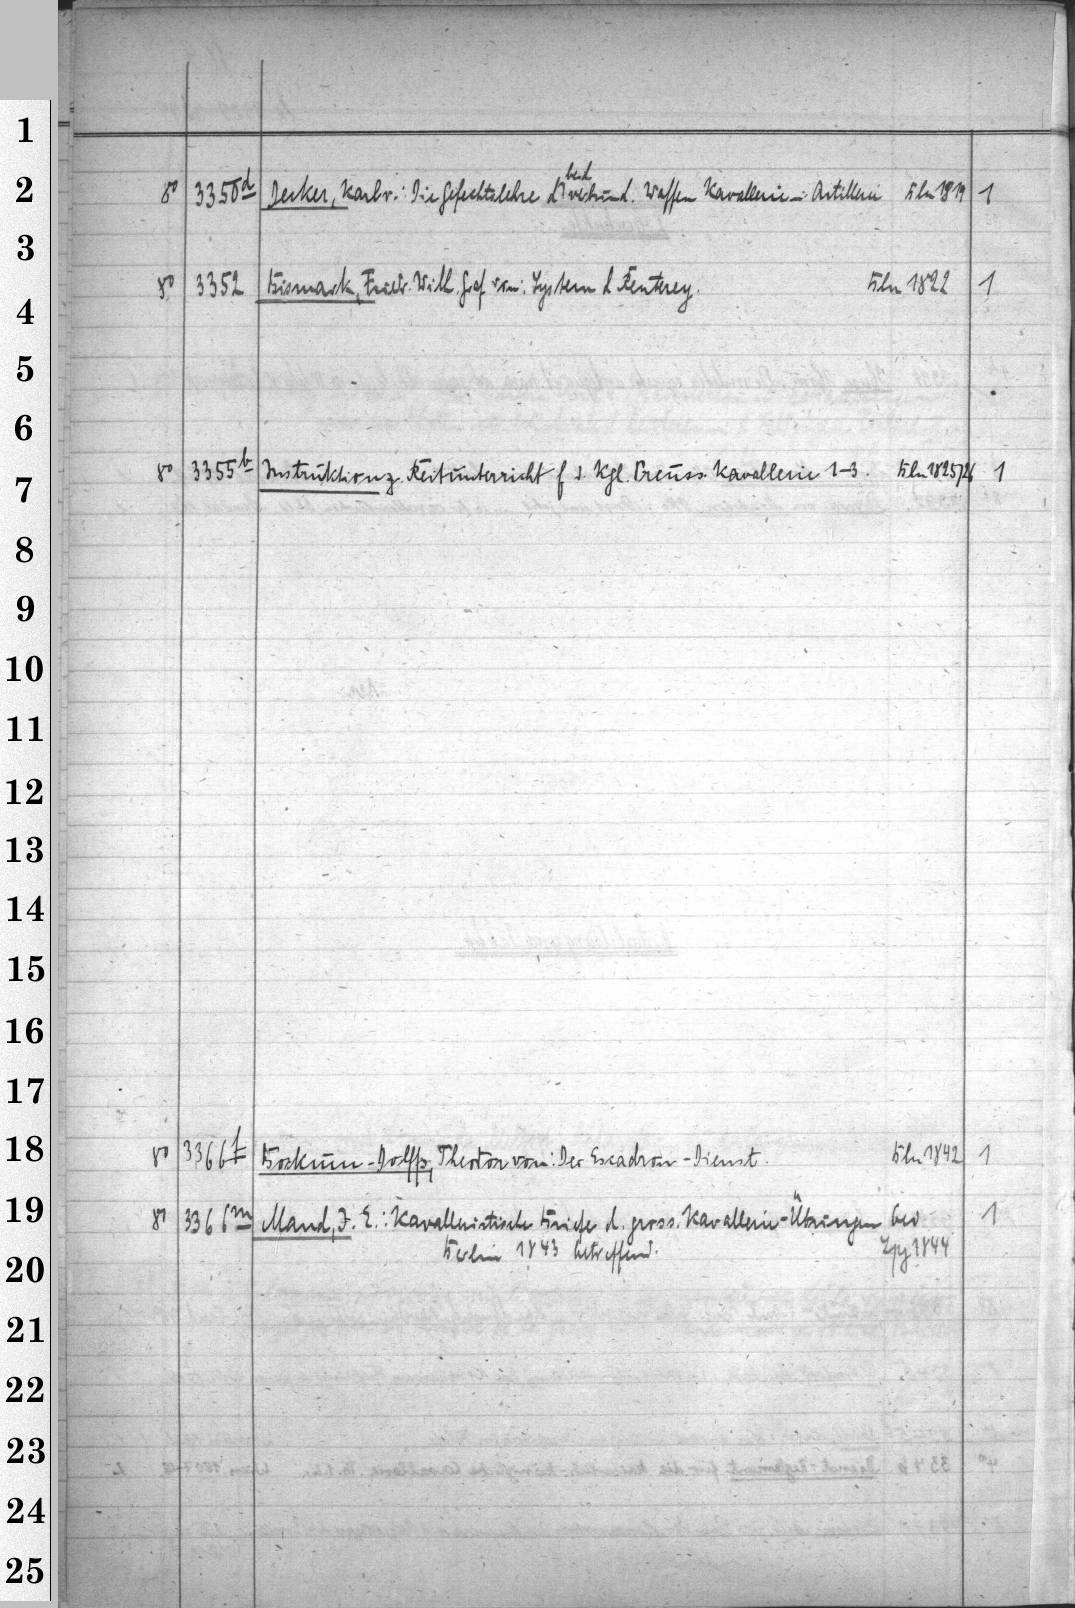 1
2
8° 3350d Decker, Karl v.: Die Gefechtslehre d. beid. verbünd. Waffen Kavallerie u. Artillerie Bln 1819 1
3
8° 3352 Bismark, Friedr. Wilh. Graf von: System d. Reuterey. Bln 1822 1
4
5
6
8° 3355b Instruktion z. Reitunterricht f. d. Kgl. Preuss. Kavallerie 1-3. Bln 1825/26 1
7
8
9
10
11
12
13
14
15
16
17
18
8° 3366f Bockum-Dolffs, Theodor von: Der Escadron-Dienst. Bln 1842 1
19
8° 3366m Mand, J. E.: Kavalleristische Briefe d. gross. Kavallerie-Übungen bei 1
Berlin 1843 betreffend. Lpz 1844
20
21
22
23
24
25